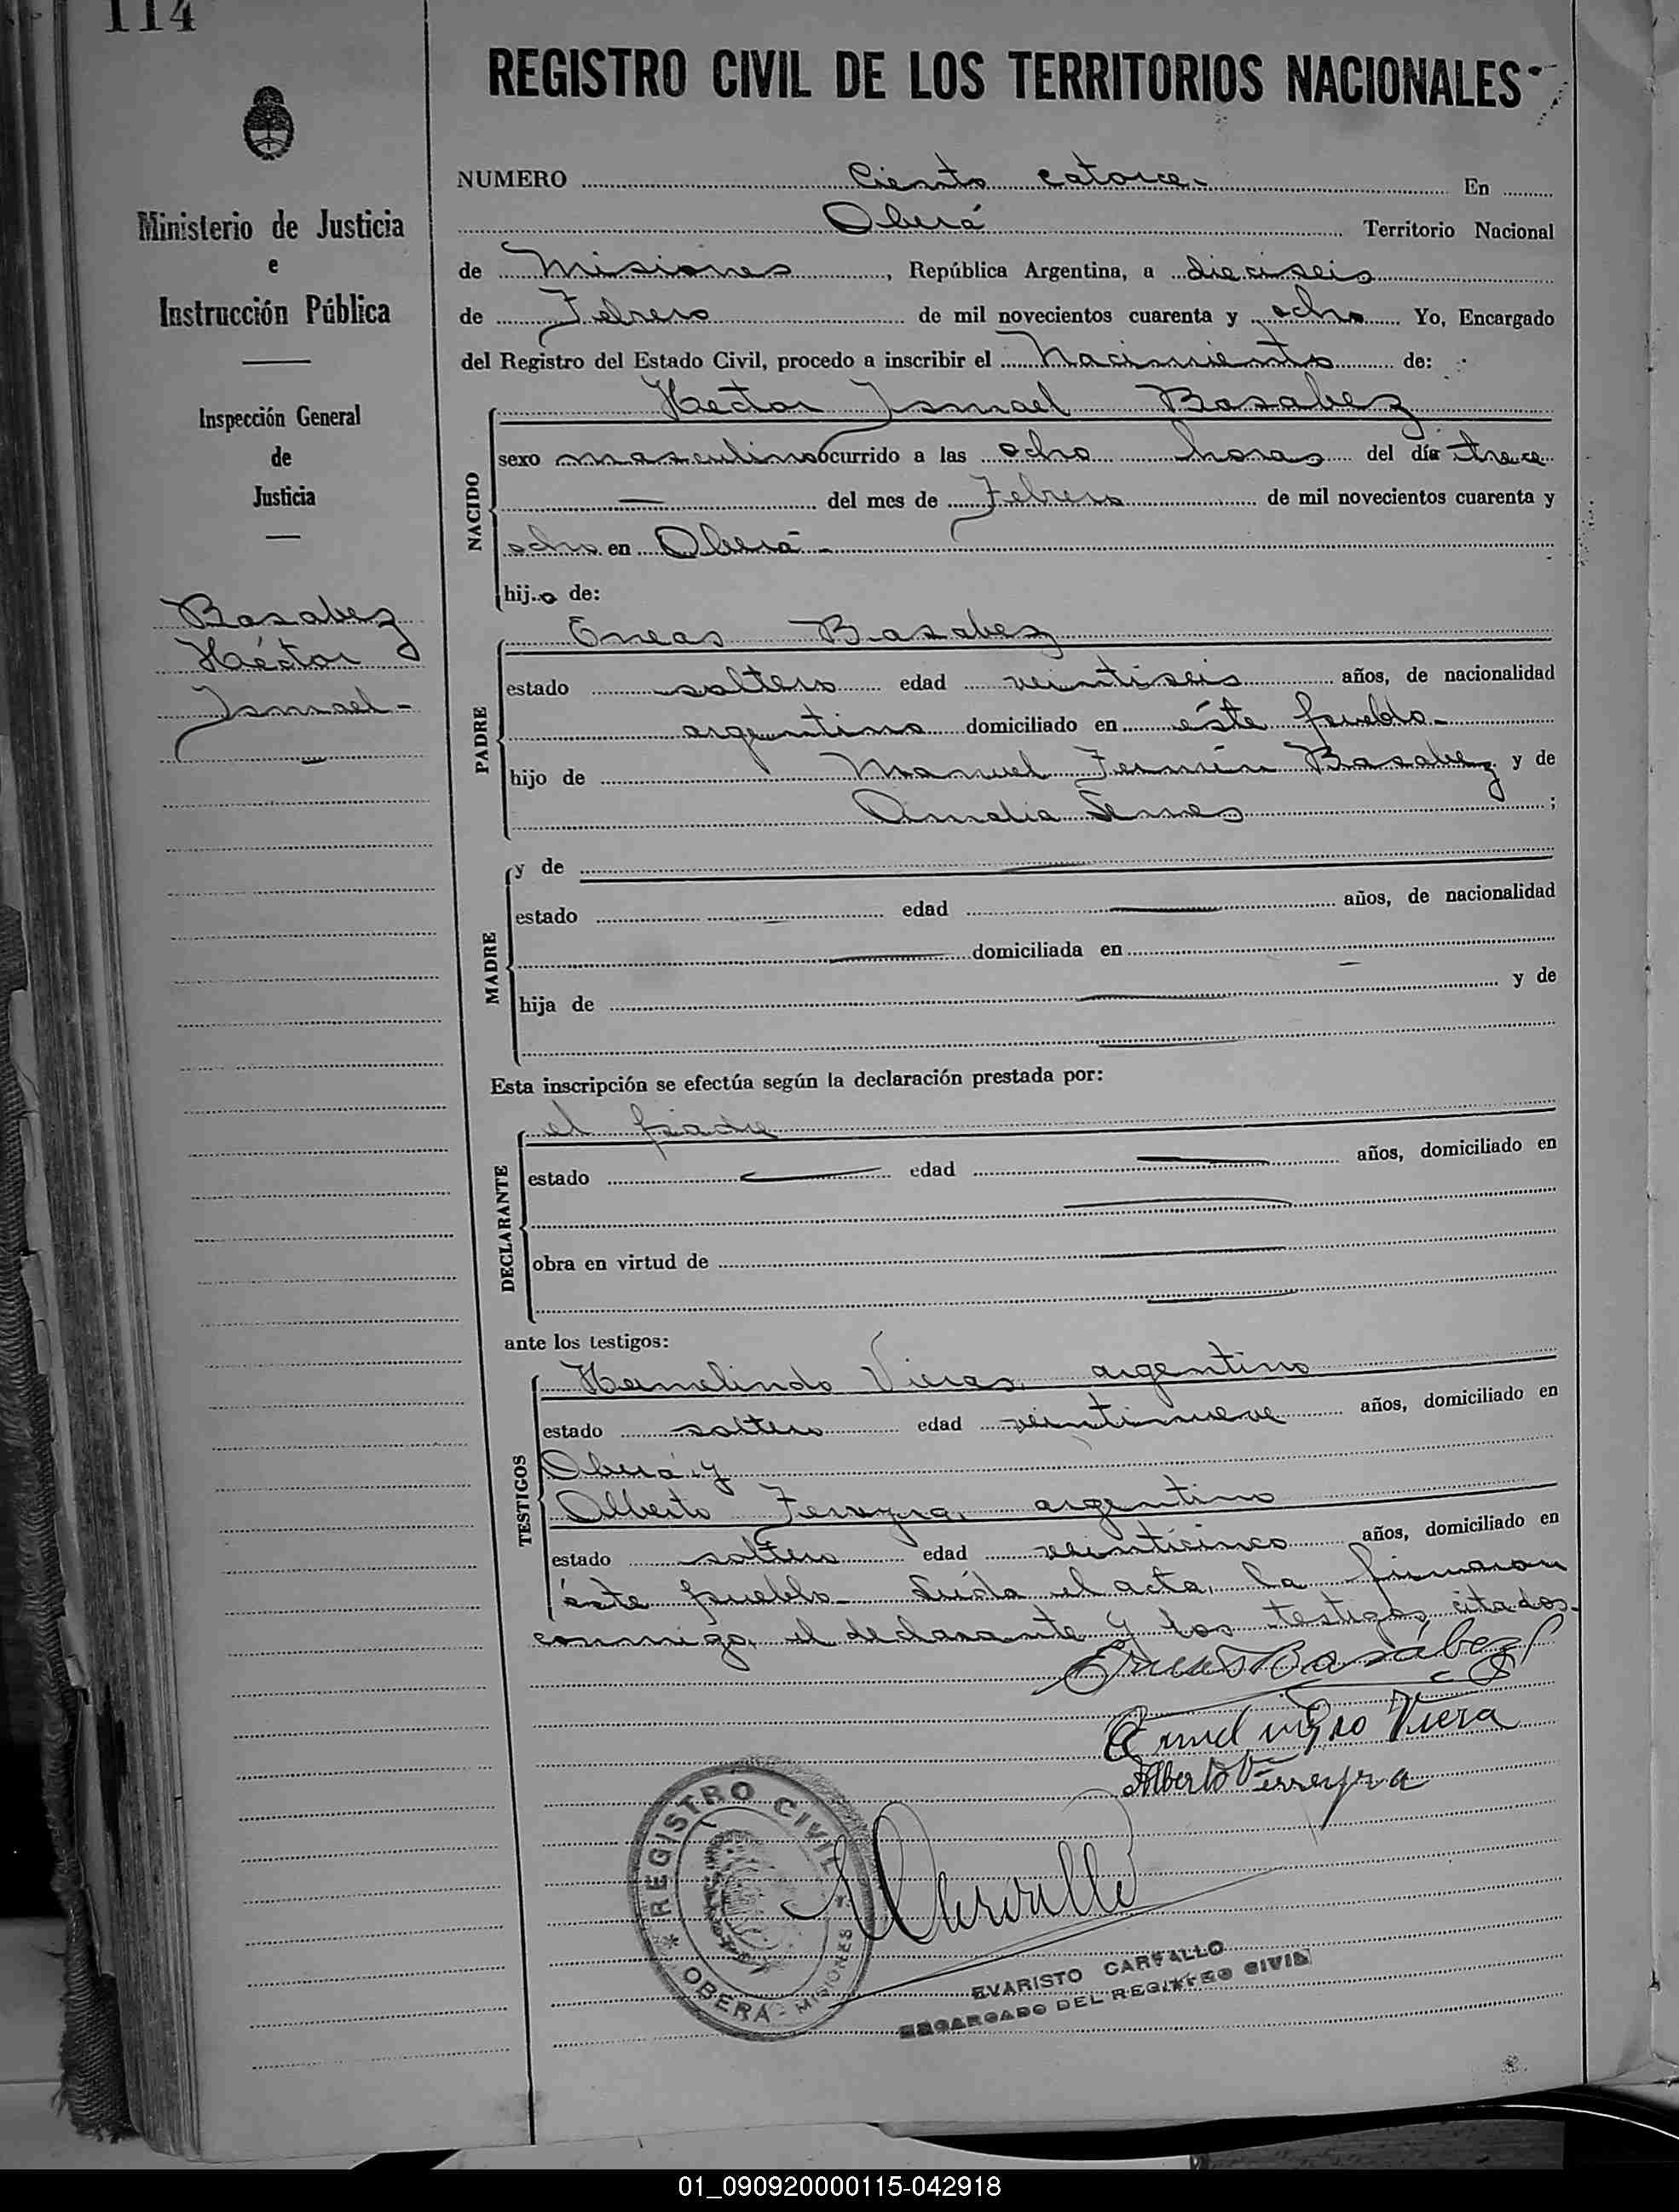 114
REGISTRO CIVIL DE LOS TERRITORIOS NACIONALES
Ministerio de Justicia
e
Instrucción Pública
Inspección General
de
Justicia
Basabez
Héctor
Ismael -
NUMERO Ciento catorce.- En
Oberá Territorio Nacional
de Misiones, República Argentina, a dieciseis
de Febrero de mil novecientos cuarenta y ocho Yo, Encargado
del Registro del Estado Civil, procedo a inscribir el Nacimiento de:
Hector Ismael Basabez
NACIDO
sexo masculino ocurrido a las ocho horas del día trece
— del mes de Febrero de mil novecientos cuarenta y
ocho en Oberá -
hijo de:
PADRE
Eneas Basabez
estado soltero edad veintiseis años, de nacionalidad
argentino domiciliado en éste pueblo-
hijo de Manuel Fermín Basabez y de
Amelia ;
MADRE
y de —
estado — edad — años, de nacionalidad
— domiciliada en —
hija de — y de
—
Esta inscripción se efectúa según la declaración prestada por:
DECLARANTE
el padre
estado — edad — años, domiciliado en
—
obra en virtud de —
—
ante los testigos:
TESTIGOS
Hermelindo Vieras, argentino
estado soltero edad veintinueve años, domiciliado en
Oberá y
Alberto Ferreyra, argentino
estado soltero edad veinticinco años, domiciliado en
éste pueblo- Leída el acta, la firmaron
conmigo, el declarante y los testigos citados.
Eneas Basábez
Viera
Alberto Ferreyra
REGISTRO CIVIL
* OBERA - MISIONES *
EVARISTO CARVALLO
ENCARGADO DEL REGISTRO CIVIL
01_090920000115-042918